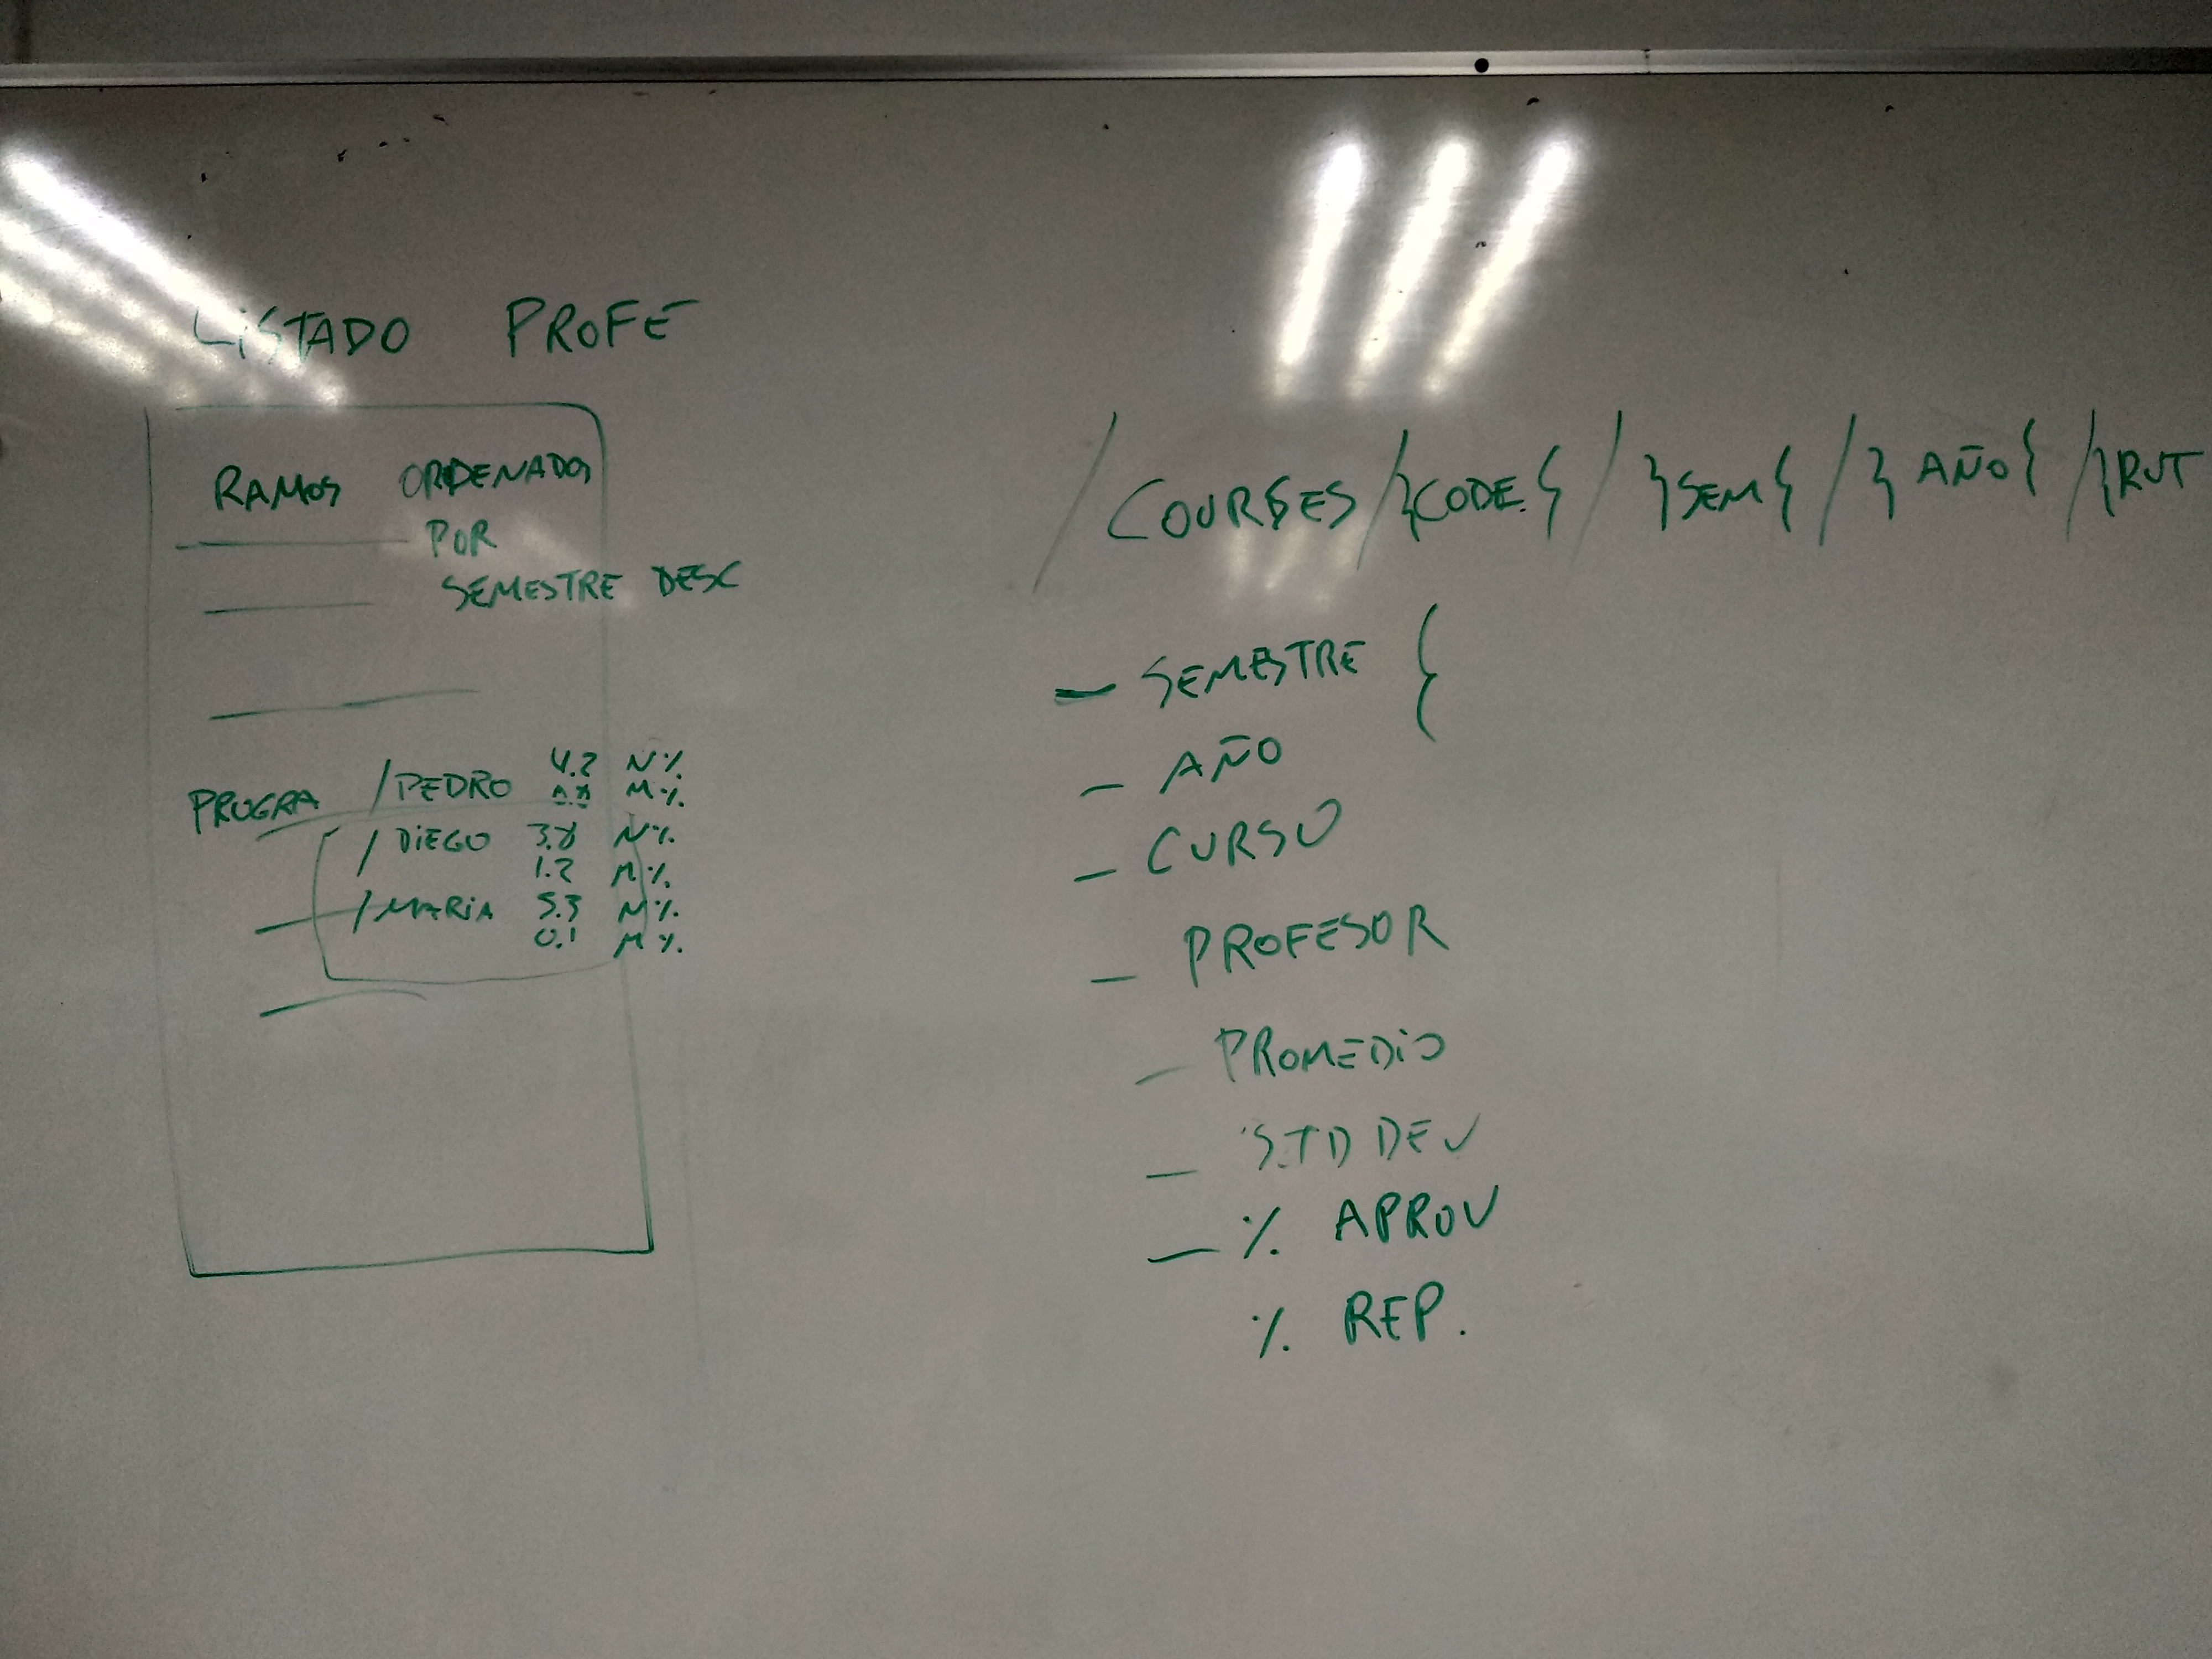 LISTADO PROFE
RAMOS ORDENADOS
POR
SEMESTRE DESC
PROGRA /PEDRO 4.2 N%
M%
/ DIEGO 3.8 N%
1.2 M%
/MARIA 5.3 N%
0.1 M%
/COURSES/}CODE{/}SEM{/}AÑO{/}RUT
— SEMESTRE {
— AÑO
— CURSO
— PROFESOR
— PROMEDIO
— STD DEV
— % APROV
% REP.